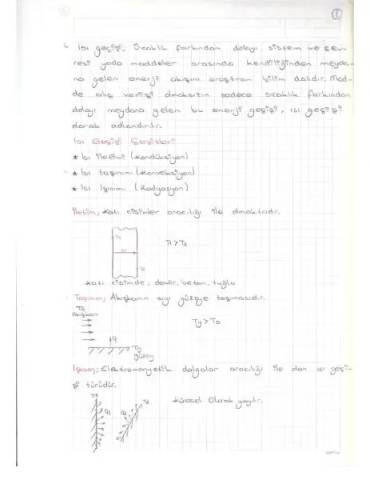 1
Isı geçişi, Sıcaklık farkından dolayı sistem ve çev-
resi yada maddeler arasında kendiliğinden meyda-
na gelen enerji akışını araştıran bilim dalıdır. Mad-
de alış verişi olmaksızın sadece sıcaklık farkından
dolayı meydana gelen bu enerji geçişi, ısı geçişi
olarak adlandırılır.
Isı Geçişi Çeşitleri
* Isı İletimi (Kondüksiyon)
* Isı taşınım (Konveksiyon)
* Isı Işınımı (Radyasyon)
İletim; Katı cisimler aracılığı ile olmaktadır.
T1
T1>T2
T2
Katı cisimde, demir, beton, tuğla
Taşınım; Akışkanın ısıyı yüzeye taşımasıdır.
Akışkan
Ty>T∞
Ty
yüzey
Işınım; Elektromanyetik dalgalar aracılığı ile olan ısı geçi-
şi türüdür.
küresel olarak yayılır.